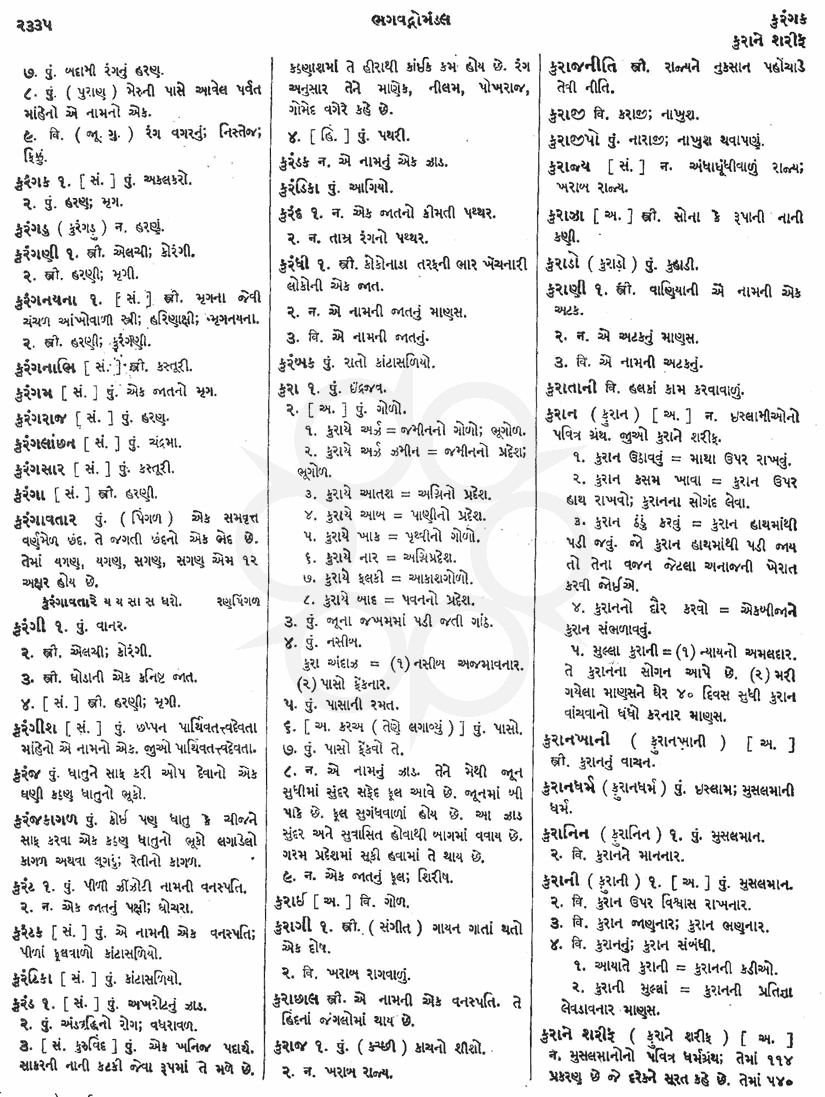 ૨૩૩૫
ભગવદ્ગોમંડલ
કુરંગક
કુરાને શરીફ
૭. પું. બદામી રંગનું હરણ.
૮. પું. ( પુરાણ ) મેરુની પાસે આવેલ પર્વત
માંહેનો એ નામનો એક.
૯. વિ. ( જૂ. ગુ. ) રંગ વગરનું; નિસ્તેજ;
ફિક્કું.
કુરંગક ૧. [ સં. ] પું. અક્કલકરો.
૨. પું. હરણ; મૃગ.
કુરંગડુ ( કુરંગડુ ) ન. હરણું.
કુરંગણી ૧. સ્ત્રી. એલચી; કોરંગી.
૨. સ્ત્રી. હરણી; મૃગી.
કુરંગનયના ૧. [ સં. ] સ્ત્રી. મૃગના જેવી
ચંચળ આંખોવાળી સ્ત્રી; હરિણાક્ષી; મૃગનયના.
૨. સ્ત્રી. હરણી; કુરંગણી.
કુરંગનાભિ [ સં. ] સ્ત્રી. કસ્તૂરી.
કુરંગમ [ સં. ] પું. એક જાતનો મૃગ.
કુરંગરાજ [ સં. ] પું. હરણ.
કુરંગલાંછન [ સં. ] પું. ચંદ્રમા.
કુરંગસાર [ સં. ] પું. કસ્તૂરી.
કુરંગા [ સં. ] સ્ત્રી. હરણી.
કુરંગાવતાર પું. ( પિંગળ ) એક સમવૃત્ત
વર્ણમેળ છંદ. તે જગતી છંદનો એક ભેદ છે.
તેમાં યગણ, યગણ, સગણ, સગણ એમ ૧૨
અક્ષર હોય છે.
કુરંગાવતારે ય ય સા સ ધરો. રણપિંગળ
કુરંગી ૧. પું. વાનર.
૨. સ્ત્રી. એલચી; કોરંગી.
૩. સ્ત્રી. ઘોડાની એક કનિષ્ટ જાત.
૪. [ સં. ] સ્ત્રી. હરણી; મૃગી.
કુરંગીશ [ સં. ] પું. છપ્પન પાર્થિવતત્ત્વદેવતા
માંહેનો એ નામનો એક. જુઓ પાર્થિવતત્ત્વદેવતા.
કુરંજ પું. ધાતુને સાફ કરી ઓપ દેવાનો એક
ઘણી કઠણ ધાતુનો ભૂકો.
કુરંજકાગળ પું. કોઈ પણ ધાતુ કે ચીજને
સાફ કરવા એક કઠણ ધાતુનો ભૂકો લગાડેલો
કાગળ અથવા લૂગડું; રેતીનો કાગળ.
કુરંટ ૧. પું. પીળી ઝીંઝોટી નામની વનસ્પતિ.
૨. ન. એક જાતનું પક્ષી; ઘોચરા.
કુરંટક [ સં. ] પું. એ નામની એક વનસ્પતિ;
પીળાં ફૂલવાળો કાંટાસળિયો.
કુરંટિકા [ સં. ] પું. કાંટાસળિયો.
કુરંડ ૧. [ સં. ] પું. અખરોટનું ઝાડ.
૨. પું. અંડવૃદ્ધિનો રોગ; વધરાવળ.
૩. [ સં. કુરુવિંદ ] પું. એક ખનિજ પદાર્થ.
સાકરની નાની કટકી જેવા રૂપમાં તે મળે છે.
કઠણાશમાં તે હીરાથી કાંઈક કમ હોય છે. રંગ
અનુસાર તેને માણેક, નીલમ, પોખરાજ,
ગોમેદ વગેરે કહે છે.
૪. [ હિં. ] પું. પથરી.
કુરંડક ન. એ નામનું એક ઝાડ.
કુરંડિકા પું. આગિયો.
કુરંદ ૧. ન. એક જાતનો કીમતી પથ્થર.
૨. ન. તામ્ર રંગનો પથ્થર.
કુરંધી ૧. સ્ત્રી. કોકોનાડા તરફની ભાર ખેંચનારી
લોકોની એક જાત.
૨. ન. એ નામની જાતનું માણસ.
૩. વિ. એ નામની જાતનું.
કુરંબક પું. રાતો કાંટાસળિયો.
કુરા ૧. પું. ઇંદ્રજવ.
૨. [ અ. ] પું. ગોળો.
૧. કુરાયે અર્ઝ = જમીનનો ગોળો; ભૂગોળ.
૨. કુરાયે અર્ઝ ઝમીન = જમીનનો પ્રદેશ;
ભૂગોળ.
૩. કુરાયે આતશ = અગ્નિનો પ્રદેશ.
૪. કુરાયે આબ = પાણીનો પ્રદેશ.
૫. કુરાયે ખાક = પૃથ્વીનો ગોળો.
૬. કુરાયે નાર = અગ્નિપ્રદેશ.
૭. કુરાયે ફલકી = આકાશગોળો.
૮. કુરાયે બાદ = પવનનો પ્રદેશ.
૩. પું. જૂના જખમમાં પડી જતી ગાંઠ.
૪. પું. નસીબ.
કુરા અંદાઝ = (૧) નસીબ અજમાવનાર.
(૨) પાસો ફેંકનાર.
૫. પું. પાસાની રમત.
૬. [ અ. કરઅ ( તેણે લગાવ્યું ) ] પું. પાસો.
૭. પું. પાસો ફેંકવો તે.
૮. ન. એ નામનું ઝાડ. તેને મેથી જૂન
સુધીમાં સુંદર સફેદ ફૂલ આવે છે. જૂનમાં બી
પાકે છે. ફૂલ સુગંધવાળાં હોય છે. આ ઝાડ
સુંદર અને સુવાસિત હોવાથી બાગમાં વવાય છે.
ગરમ પ્રદેશમાં સૂકી હવામાં તે થાય છે.
૯. ન. એક જાતનું ફૂલ; શિરીષ.
કુરાઈ [ અ. ] વિ. ગોળ.
કુરાગી ૧. સ્ત્રી. ( સંગીત ) ગાયન ગાતાં થતો
એક દોષ.
૨. વિ. ખરાબ રાગવાળું.
કુરાછાલ સ્ત્રી. એ નામની એક વનસ્પતિ. તે
હિંદનાં જંગલોમાં થાય છે.
કુરાજ ૧. પું. ( કચ્છી ) કાચનો શીશો.
૨. ન. ખરાબ રાજ્ય.
કુરાજનીતિ સ્ત્રી. રાજ્યને નુકસાન પહોંચાડે
તેવી નીતિ.
કુરાજી વિ. કરાજી; નાખુશ.
કુરાજીપો પું. નારાજી; નાખુશ થવાપણું.
કુરાજ્ય [ સં. ] ન. અંધાધૂંધીવાળું રાજ્ય;
ખરાબ રાજ્ય.
કુરાઝા [ અ. ] સ્ત્રી. સોના કે રૂપાની નાની
કણી.
કુરાડો ( કુરાડ઼ો ) પું. કુહાડી.
કુરાણી ૧. સ્ત્રી. વાણિયાની એ નામની એક
અટક.
૨. ન. એ અટકનું માણસ.
૩. વિ. એ નામની અટકનું.
કુરાતાની વિ. હલકાં કામ કરવાવાળું.
કુરાન ( કુરાન ) [ અ. ] ન. ઇસ્લામીઓનો
પવિત્ર ગ્રંથ. જુઓ કુરાને શરીફ.
૧. કુરાન ઉઠાવવું = માથા ઉપર રાખવું.
૨. કુરાન કસમ ખાવા = કુરાન ઉપર
હાથ રાખવો; કુરાનના સોગંદ લેવા.
૩. કુરાન ઠંડું કરવું = કુરાન હાથમાંથી
પડી જવું. જો કુરાન હાથમાંથી પડી જાય
તો તેના વજન જેટલા અનાજની ખેરાત
કરવી જોઈએ.
૪. કુરાનનો દૌર કરવો = એકબીજાને
કુરાન સંભળાવવું.
૫. મુલ્લા કુરાની = (૧) ન્યાયનો અમલદાર.
તે કુરાનના સોગન આપે છે. (૨) મરી
ગયેલા માણસને ઘેર ૪૦ દિવસ સુધી કુરાન
વાંચવાનો ધંધો કરનાર માણસ.
કુરાનખાની ( કુરાનખાની ) [ અ. ]
સ્ત્રી. કુરાનનું વાચન.
કુરાનધર્મ ( કુરાનધર્મ ) પું. ઇસ્લામ; મુસલમાની
ધર્મ.
કુરાનિન ( કુરાનિન ) ૧. પું. મુસલમાન.
૨. વિ. કુરાનને માનનાર.
કુરાની ( કુરાની ) ૧. [ અ. ] પું. મુસલમાન.
૨. વિ. કુરાન ઉપર વિશ્વાસ રાખનાર.
૩. વિ. કુરાન જાણનાર; કુરાન ભણનાર.
૪. વિ. કુરાનનું; કુરાન સંબંધી.
૧. આયાતે કુરાની = કુરાનની કડીઓ.
૨. કુરાની મુલ્લાં = કુરાનની પ્રતિજ્ઞા
લેવડાવનાર માણસ.
કુરાને શરીફ ( કુરાને શરીફ ) [ અ. ]
ન. મુસલમાનોનો પવિત્ર ધર્મગ્રંથ; તેમાં ૧૧૪
પ્રકરણ છે જે દરેકને સૂરત કહે છે. તેમાં ૫૪૦